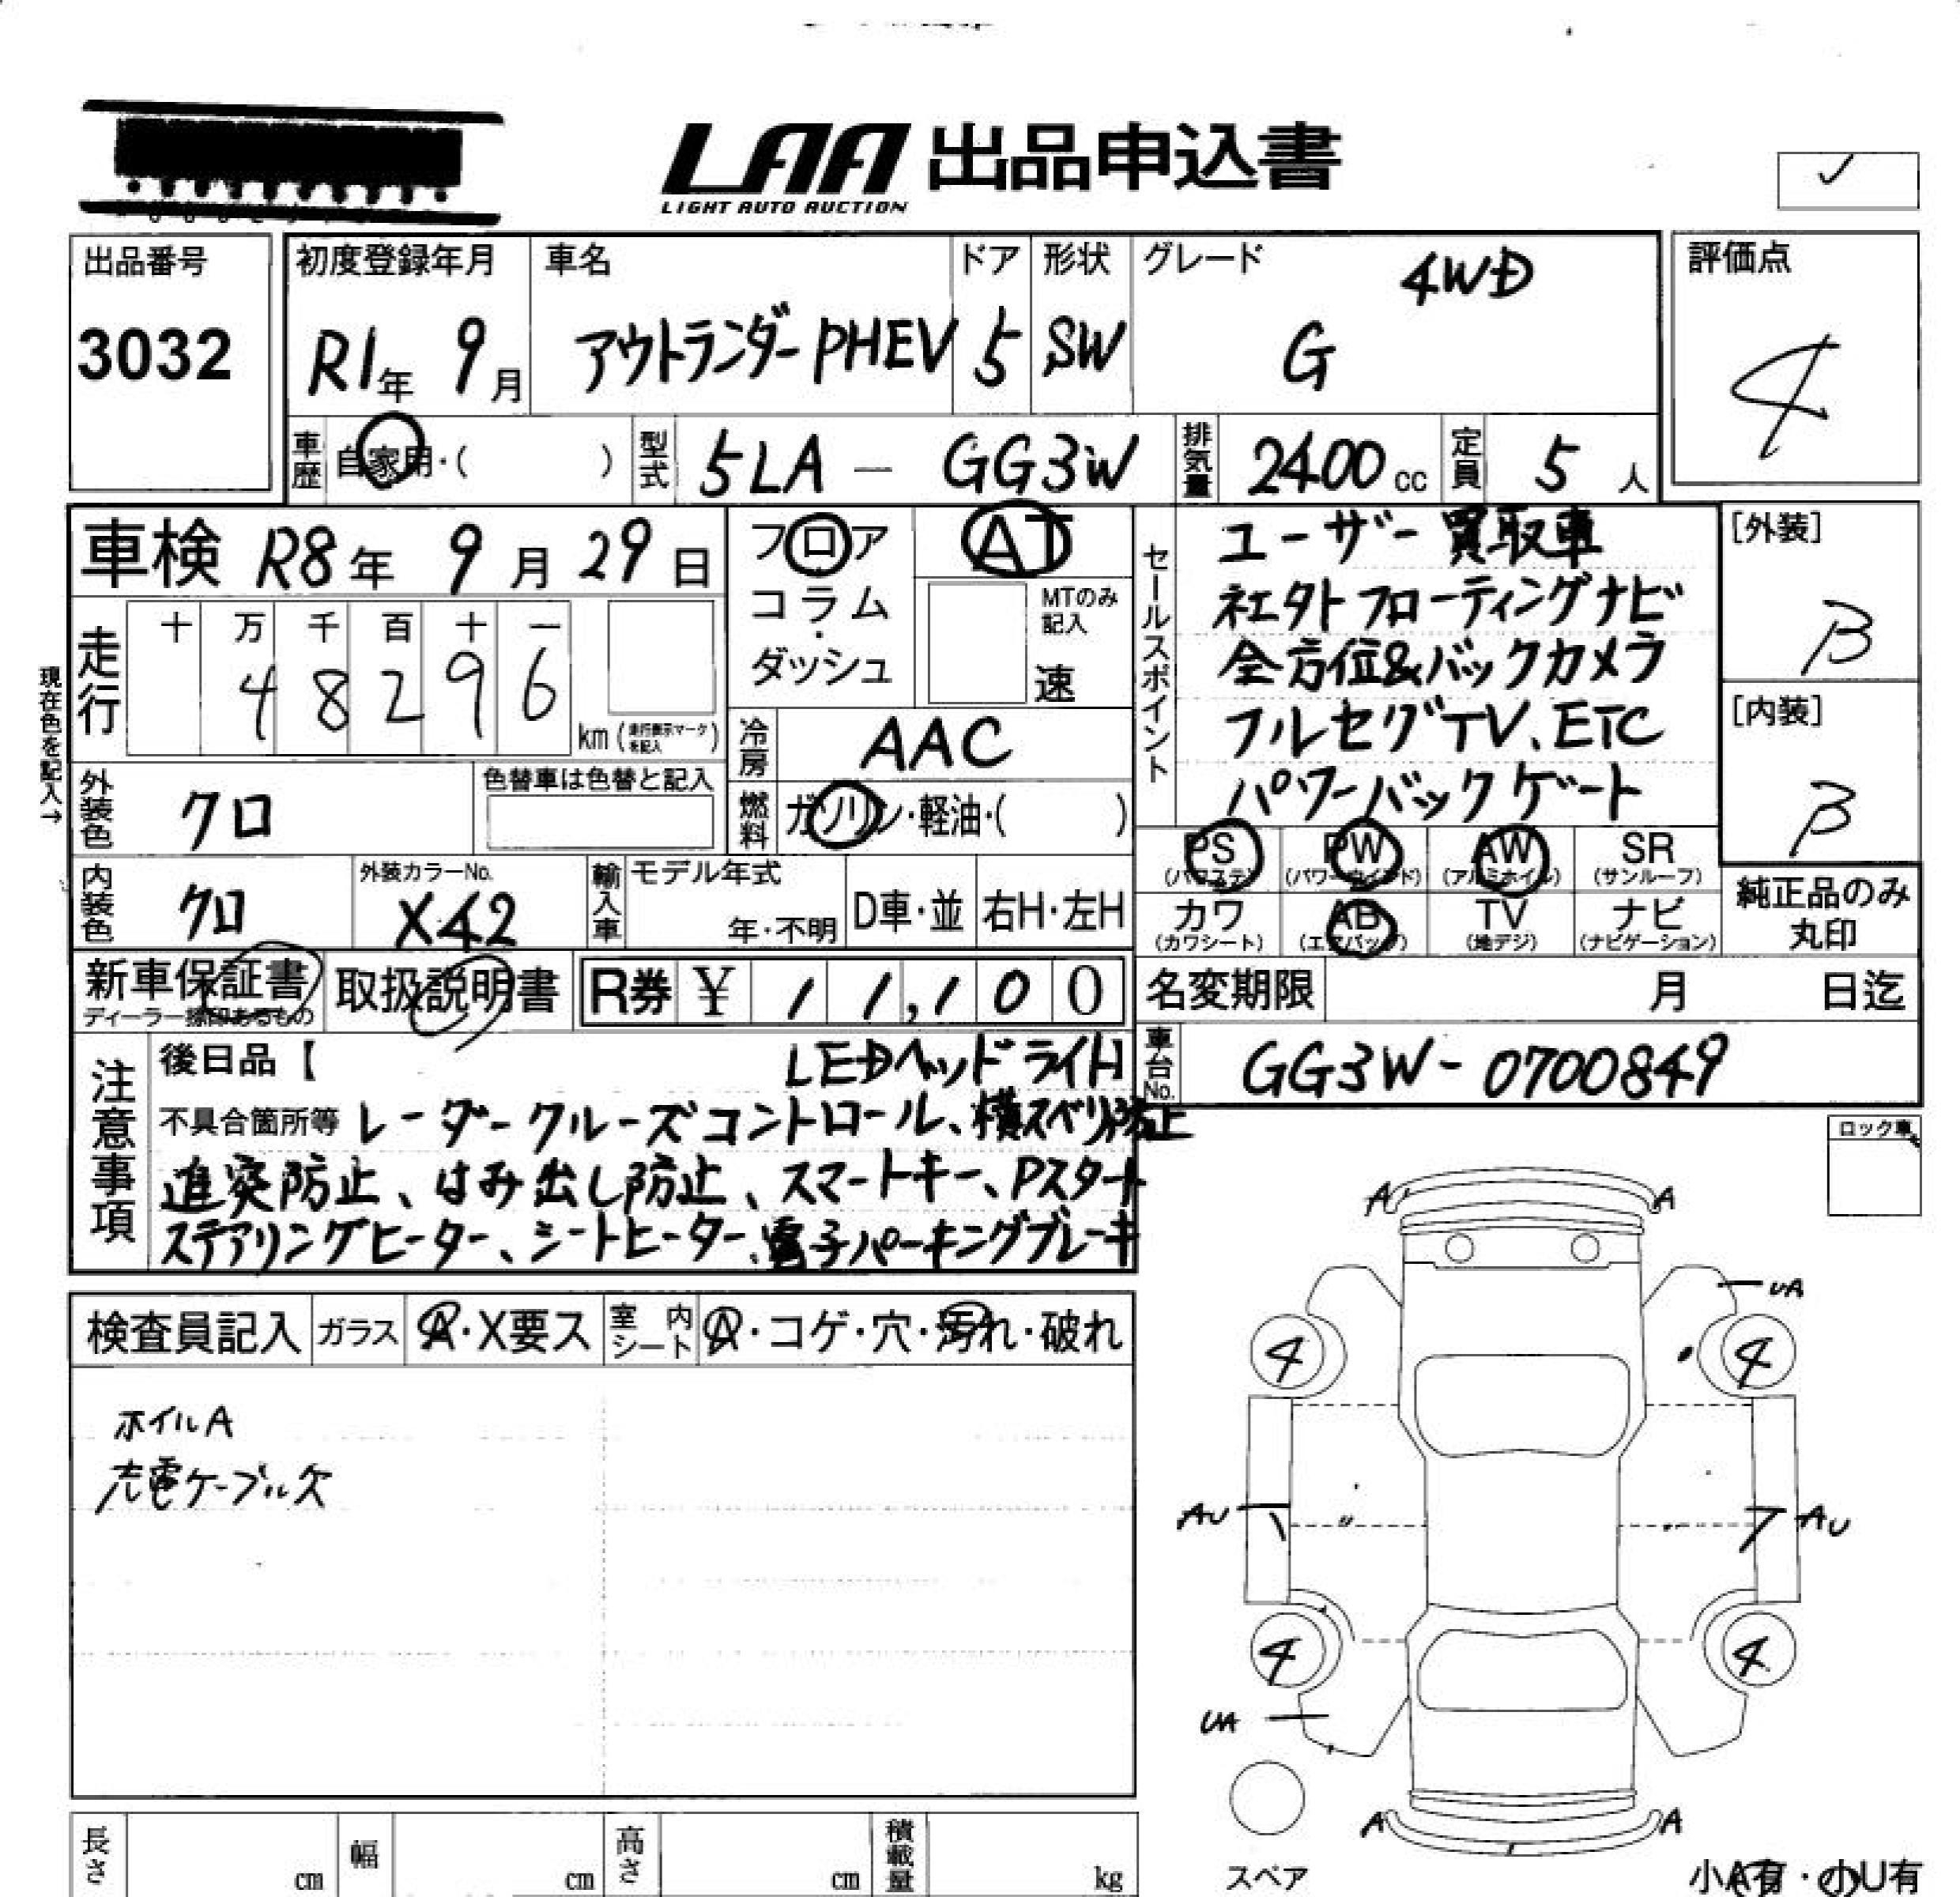 LAA 出品申込書
LIGHT AUTO AUCTION
出品番号
3032
初度登録年月
R1年 9月
車名
アウトランダーPHEV
ドア
5
形状
SW
グレード
4WD
G
評価点
4
車歴 自家用・( )
型式 5LA - GG3W
排気量 2400 cc
定員 5 人
車検 R8年 9月 29日
フロア
コラム
・
ダッシュ
AT
MTのみ記入
速
セールスポイント
ユーザー買取車
社外フローティングナビ
全方位&バックカメラ
フルセグTV、ETC
パワーバックゲート
[外装]
B
[内装]
B
現在色を記入→
走行
十 万 千 百 十 一
4 8 2 9 6
km (走行表示マークを記入)
冷房 AAC
燃料 ガソリン・軽油・( )
外装色 クロ
色替車は色替と記入
内装色 クロ
外装カラーNo.
X42
輸入車
モデル年式
年・不明
D車・並
右H・左H
PS
(パワステ)
PW
(パワーウインド)
AW
(アルミホイル)
SR
(サンルーフ)
カワ
(カワシート)
AB
(エアバッグ)
TV
(地デジ)
ナビ
(ナビゲーション)
純正品のみ
丸印
新車保証書
ディーラー捺印あるもの
取扱説明書
R券 ¥ 1 1,1 0 0
名変期限 月 日迄
車台No. GG3W-0700849
注意事項
後日品【 LEDヘッドライト】
不具合箇所等 レーダークルーズコントロール、横スベリ防止
追突防止、はみ出し防止、スマートキー、Pスタート
ステアリングヒーター、シートヒーター、電子パーキングブレーキ
ロック車
検査員記入
ガラス A・X要ス
室内シート A・コゲ・穴・汚れ・破れ
ホイルA
充電ケーブル欠
A A
UA
4 4
AU AU
4 4
UA
A A
スペア
小A有・小U有
長さ cm
幅 cm
高さ cm
積載量 kg